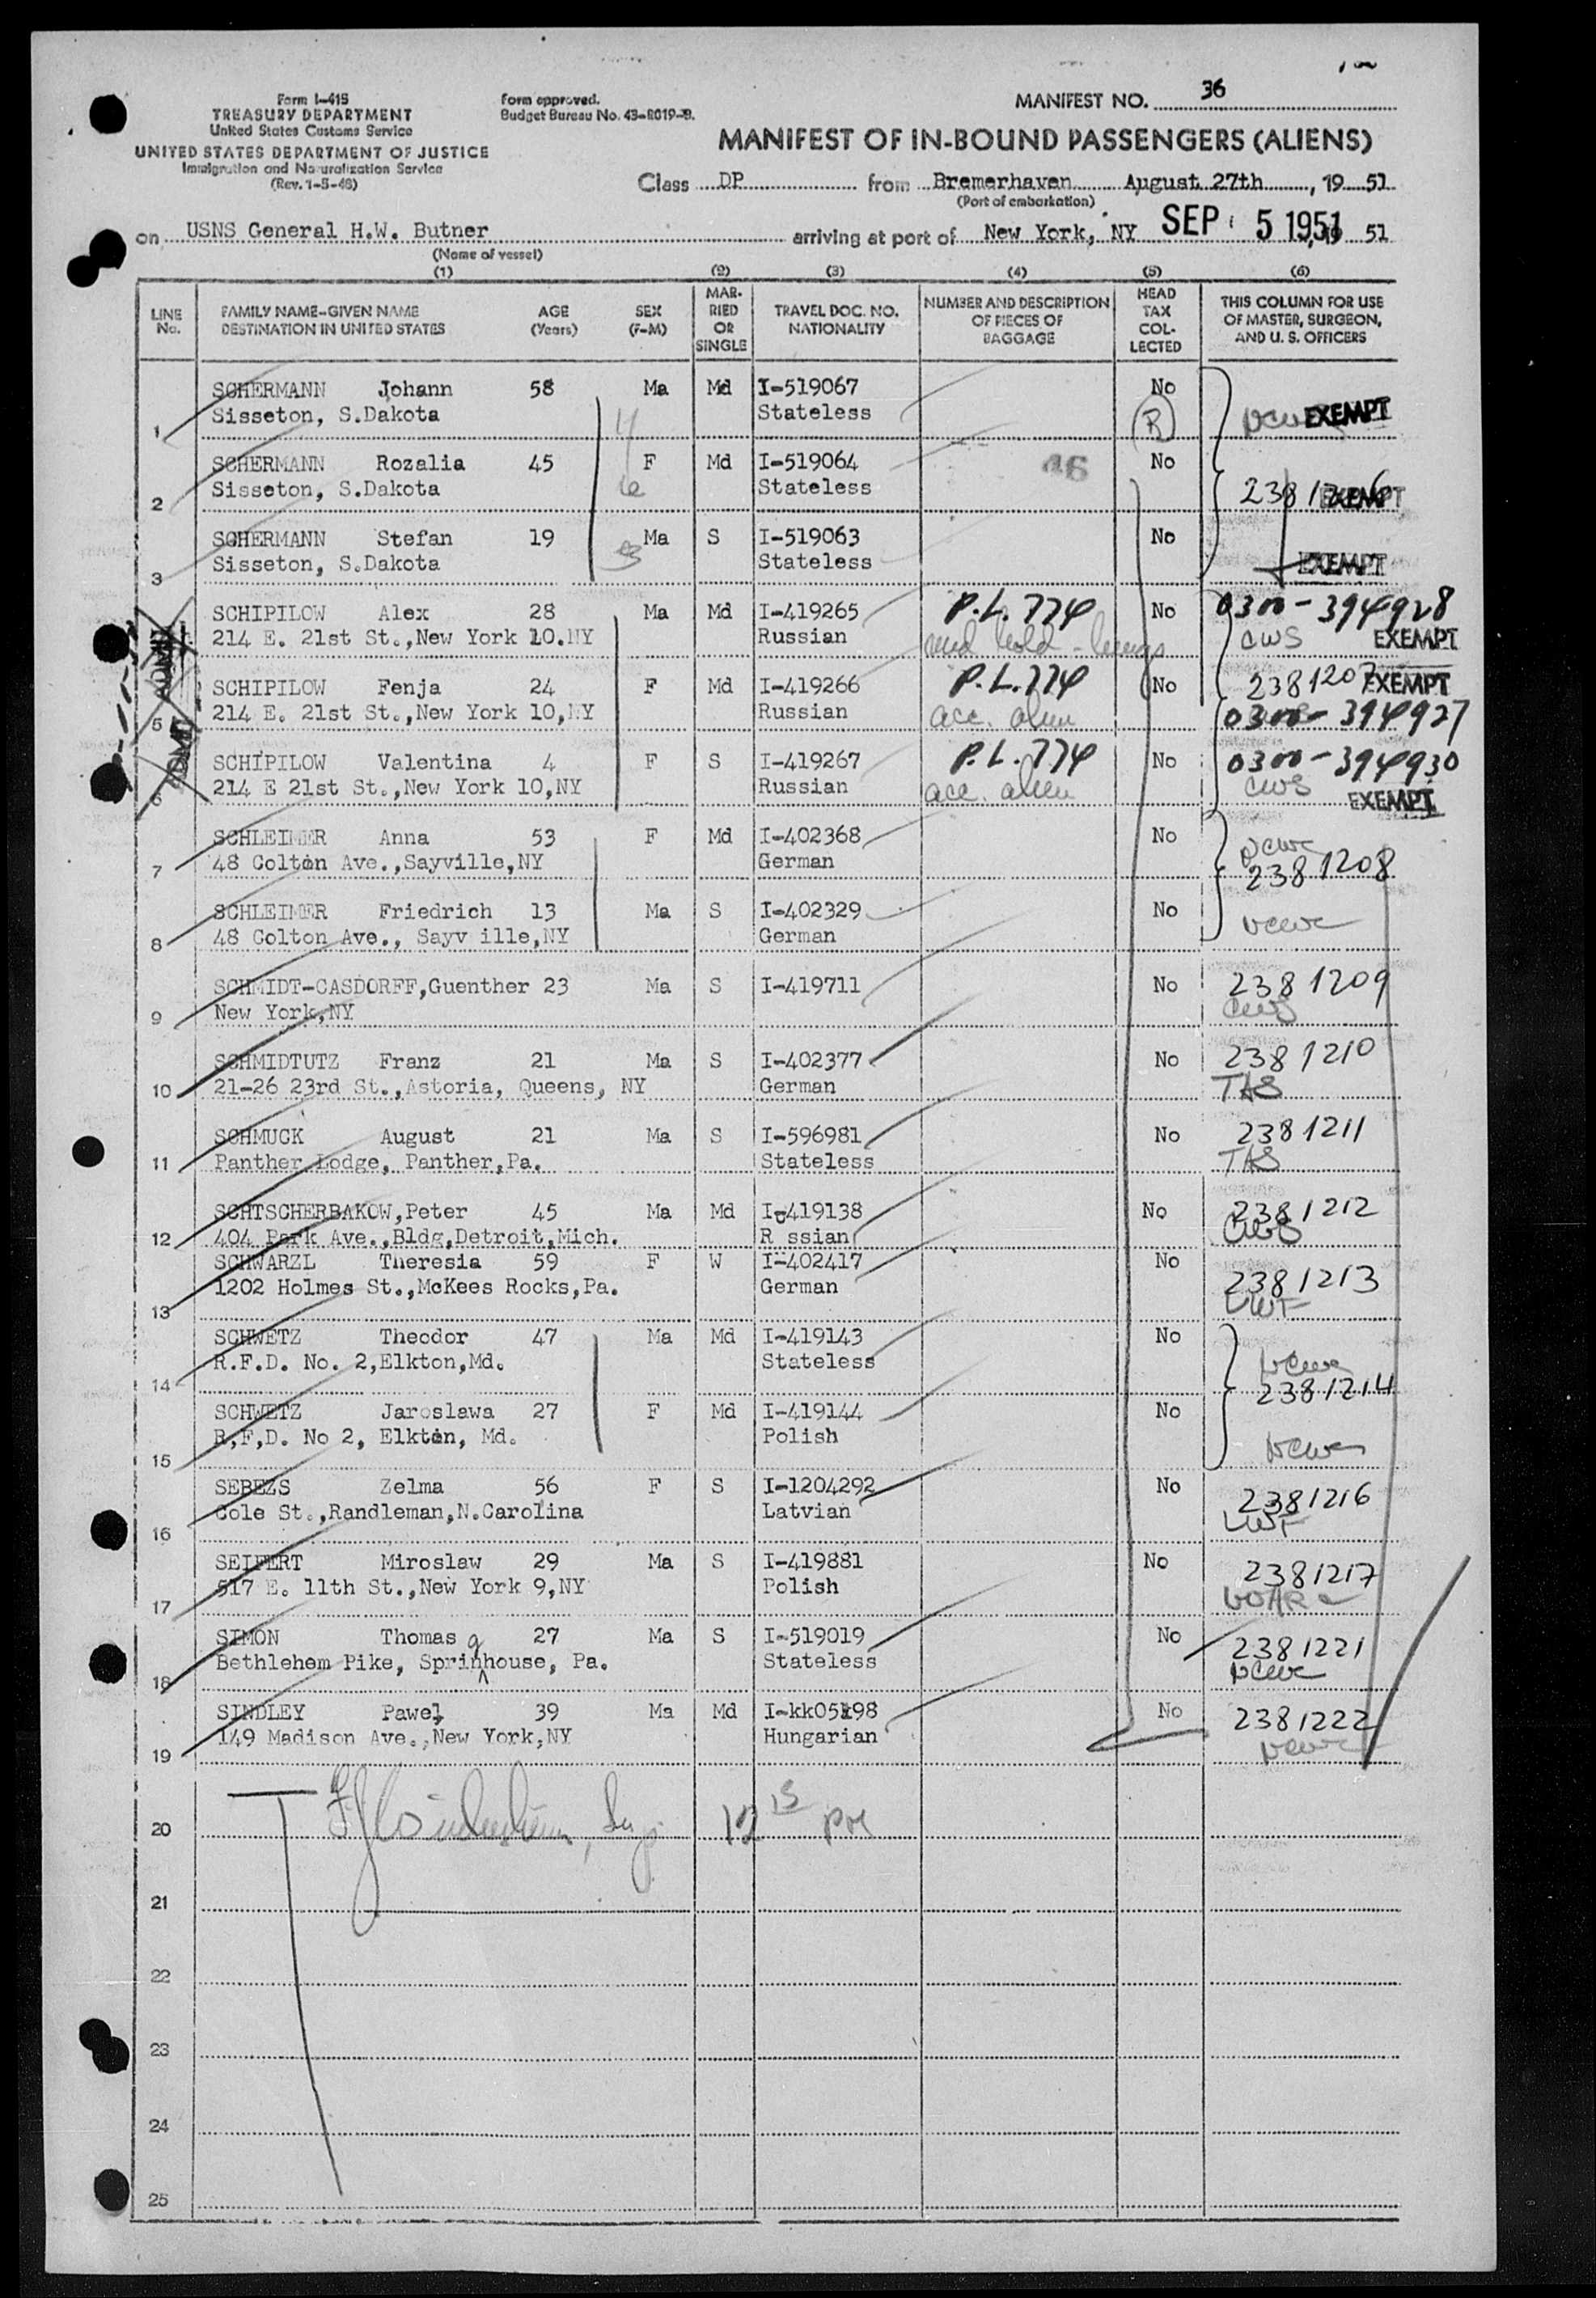 Form I-415
TREASURY DEPARTMENT
United States Customs Service
UNITED STATES DEPARTMENT OF JUSTICE
Immigration and Naturalization Service
(Rev. 1-5-48)
Form approved.
Budget Bureau No. 43-R019-3.
MANIFEST NO. 36
MANIFEST OF IN-BOUND PASSENGERS (ALIENS)
Class DP from Bremerhaven August 27th, 19 51
(Port of embarkation)
on USNS General H.W. Butner arriving at port of New York, NY SEP 5 1951, 19 51
(Name of vessel)
(1) (2) (3) (4) (5) (6)
LINE No. FAMILY NAME-GIVEN NAME DESTINATION IN UNITED STATES AGE (Years) SEX (F-M) MARRIED OR SINGLE TRAVEL DOC. NO. NATIONALITY NUMBER AND DESCRIPTION OF PIECES OF BAGGAGE HEAD TAX COLLECTED THIS COLUMN FOR USE OF MASTER, SURGEON, AND U. S. OFFICERS
SCHERMANN Johann 58 Ma Md I-519067 No
1 Sisseton, S.Dakota Stateless R EXEMPT
SCHERMANN Rozalia 45 F Md I-519064 No
2 Sisseton, S.Dakota Stateless EXEMPT
SCHERMANN Stefan 19 Ma S I-519063 No
3 Sisseton, S.Dakota Stateless EXEMPT
SCHIPILOW Alex 28 Ma Md I-419265 P.L. 774 No 0300-394928
214 E. 21st St.,New York 10.NY Russian med hold - CWS EXEMPT
SCHIPILOW Fenja 24 F Md I-419266 P.L. 774 No 2381207 EXEMPT
5 214 E. 21st St.,New York 10,NY Russian acc. alien 0300-394927
SCHIPILOW Valentina 4 F S I-419267 P.L. 774 No 0300-394930
6 214 E 21st St.,New York 10,NY Russian acc. alien CWS EXEMPT
SCHLEIMER Anna 53 F Md I-402368 No NCWC
7 48 Colton Ave.,Sayville,NY German 2381208
SCHLEIMER Friedrich 13 Ma S I-402329 No
8 48 Colton Ave., Sayv ille,NY German NCWC
SCHMIDT-CASDORFF,Guenther 23 Ma S I-419711 No 2381209
9 New York,NY CWS
SCHMIDTUTZ Franz 21 Ma S I-402377 No 2381210
10 21-26 23rd St.,Astoria, Queens, NY German TAS
SCHMUCK August 21 Ma S I-596981 No 2381211
11 Panther Lodge, Panther,Pa. Stateless TAS
SCHTSCHERBAKOW,Peter 45 Ma Md I-419138 No 2381212
12 404 Park Ave.,Bldg,Detroit,Mich. R ssian CWS
SCHWARZL Theresia 59 F W I-402417 No
13 1202 Holmes St.,McKees Rocks,Pa. German 2381213
LWF
SCHWETZ Theodor 47 Ma Md I-419143 No
14 R.F.D. No. 2,Elkton,Md. Stateless NCWC
2381214
SCHWETZ Jaroslawa 27 F Md I-419144 No
15 R,F,D. No 2, Elkton, Md. Polish NCWC
SEBEZS Zelma 56 F S I-1204292 No 2381216
16 Cole St.,Randleman,N.Carolina Latvian LWF
SEIFERT Miroslaw 29 Ma S I-419881 No 2381217
17 517 E. 11th St.,New York 9,NY Polish
SIMON Thomas 27 Ma S I-519019 No 2381221
18 Bethlehem Pike, Springhouse, Pa. Stateless NCWC
SINDLEY Pawel 39 Ma Md No 2381222
19 149 Madison Ave.,New York,NY Hungarian NCWC
20 12 15 PM
21
22
23
24
25